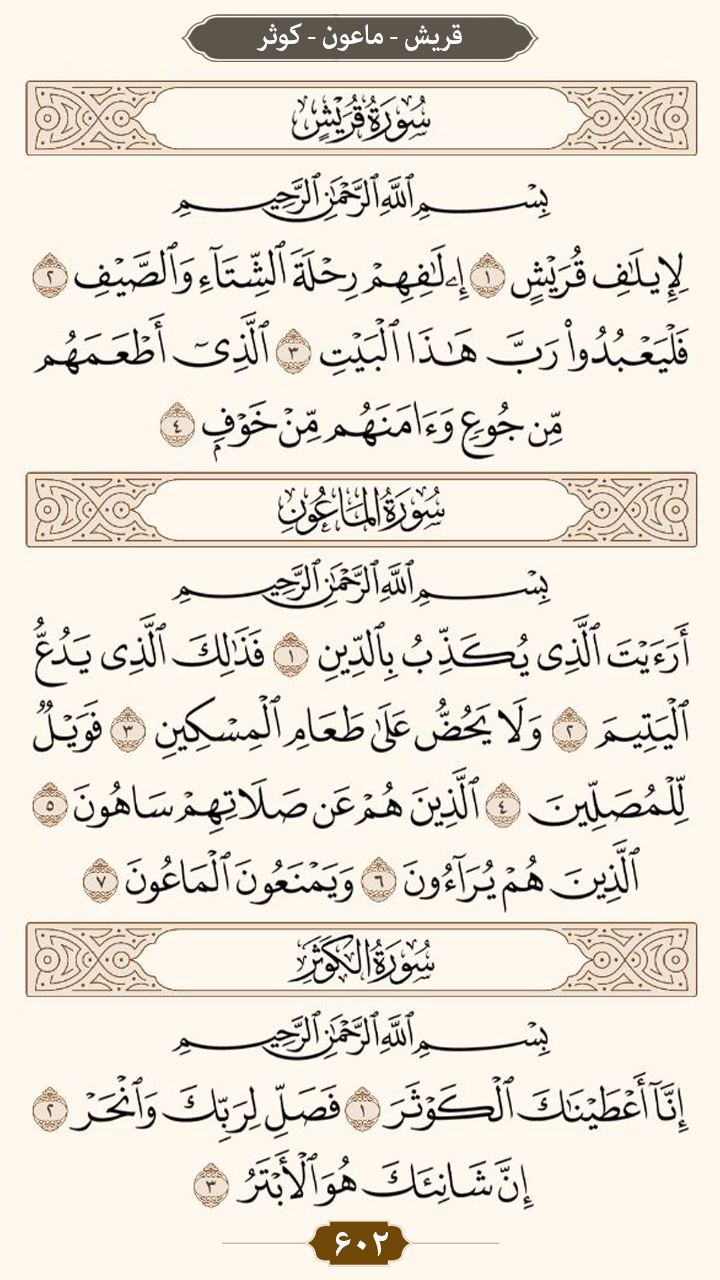 قریش - ماعون - کوثر
سُورَةُ قُرَيْشٍ
بِسْمِ ٱللَّهِ ٱلرَّحْمَٰنِ ٱلرَّحِيمِ
لِإِيلَٰفِ قُرَيْشٍ ١ إِۦلَٰفِهِمْ رِحْلَةَ ٱلشِّتَآءِ وَٱلصَّيْفِ ٢
فَلْيَعْبُدُوا۟ رَبَّ هَٰذَا ٱلْبَيْتِ ٣ ٱلَّذِىٓ أَطْعَمَهُم
مِّن جُوعٍ وَءَامَنَهُم مِّنْ خَوْفٍۭ ٤
سُورَةُ المَاعُونِ
بِسْمِ ٱللَّهِ ٱلرَّحْمَٰنِ ٱلرَّحِيمِ
أَرَءَيْتَ ٱلَّذِى يُكَذِّبُ بِٱلدِّينِ ١ فَذَٰلِكَ ٱلَّذِى يَدُعُّ
ٱلْيَتِيمَ ٢ وَلَا يَحُضُّ عَلَىٰ طَعَامِ ٱلْمِسْكِينِ ٣ فَوَيْلٌ
لِّلْمُصَلِّينَ ٤ ٱلَّذِينَ هُمْ عَن صَلَاتِهِمْ سَاهُونَ ٥
ٱلَّذِينَ هُمْ يُرَآءُونَ ٦ وَيَمْنَعُونَ ٱلْمَاعُونَ ٧
سُورَةُ الكَوْثَرِ
بِسْمِ ٱللَّهِ ٱلرَّحْمَٰنِ ٱلرَّحِيمِ
إِنَّآ أَعْطَيْنَٰكَ ٱلْكَوْثَرَ ١ فَصَلِّ لِرَبِّكَ وَٱنْحَرْ ٢
إِنَّ شَانِئَكَ هُوَ ٱلْأَبْتَرُ ٣
۶۰۲